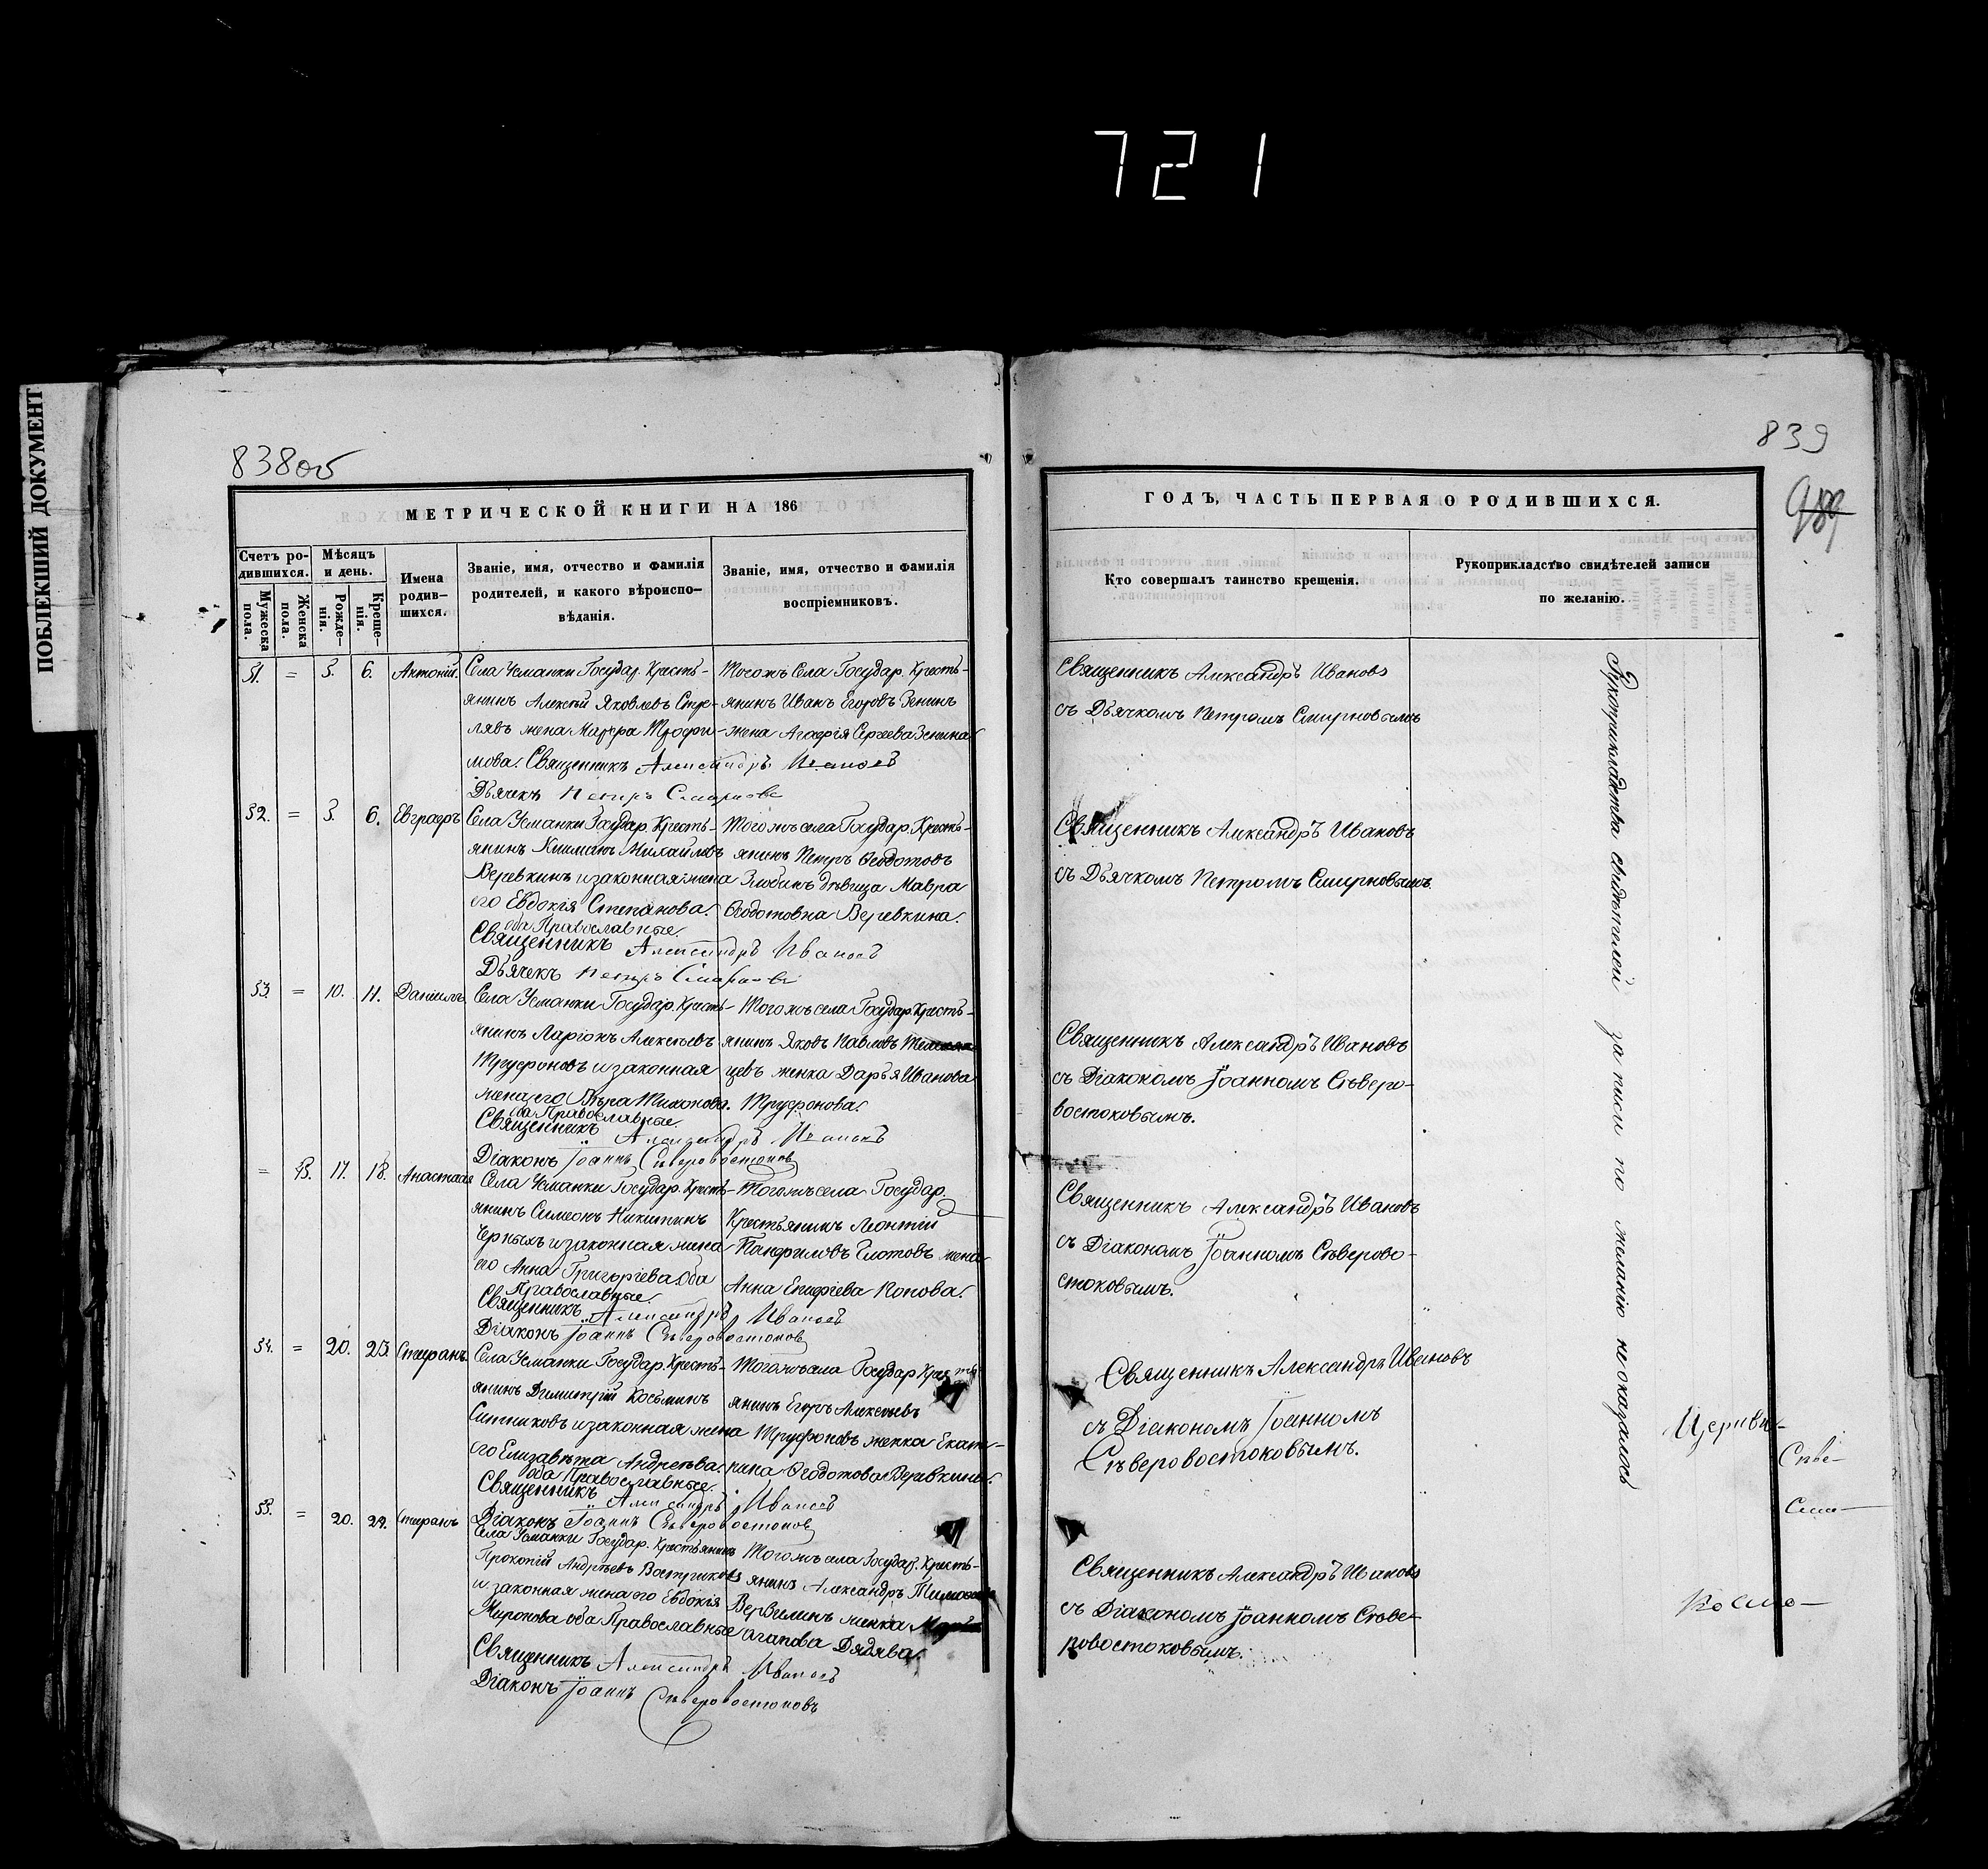 721
ПОБЛЕКШИЙ ДОКУМЕНТ
838об
МЕТРИЧЕСКОЙ КНИГИ НА 186
Счетъ ро-
дившихся.
Мужеска пола.
Женска пола.
Мѣсяцъ
и день.
Рожде-
нія.
Креще-
нія.
Имена
родив-
шихся.
Званіе, имя, отчество и фамилія
родителей, и какого вѣроиспо-
вѣданія.
Званіе, имя, отчество и фамилія
воспріемниковъ.
51. = 5. 6. Антоній.
Села Усманки Государ. Кресть-
янинъ Алексѣй Яковлевъ
жена Марфа Трофи-
мова. Священникъ Александръ Ивановъ
Дьячекъ Петръ Смирновъ
Тогожъ Села Государ. Кресть-
янинъ Иванъ Егоровъ Зенинъ
жена Агафія Сергеева Зенина.
52. = 5. 6. Евграфъ
Села Усманки Государ. Кресть-
янинъ Климентъ Михайловъ
Веревкинъ и законная жена
его Евдокія Степанова.
оба Православные.
Священникъ Александръ Ивановъ
Дьячекъ Петръ Смирновъ
Тогожъ села Государ. Кресть-
янинъ Петръ Ѳеодотовъ
Злобинъ дѣвица Мавра
Ѳеодотовна Веревкина.
53. = 10. 11. Даніилъ
Села Усманки Государ. Кресть-
янинъ Ларіонъ Алексѣевъ
Труфоновъ и законная
жена его Вѣра Тихонова.
оба Православные.
Священникъ Александръ Ивановъ
Діаконъ Іоаннъ Сѣверовостоковъ
Тогожъ села Государ. Кресть-
янинъ Яковъ Павловъ
цевъ женка Дарья Иванова
Труфонова.
= 17. 18. Анастасія
Села Усманки Государ. Кресть-
янинъ Симеонъ Никитинъ
Черныхъ и законная жена
его Анна Григоріева. Оба
Православные.
Священникъ Александръ Ивановъ
Діаконъ Іоаннъ Сѣверовостоковъ
Тогожъ села Государ.
Крестьянинъ Леонтій
Панфиловъ Глотовъ жена
Анна Епифіева Конова.
54. = 20. 23. Стефанъ.
Села Усманки Государ. Кресть-
янинъ Димитрій Косьминъ
Ситниковъ и законная жена
его Елизавѣта Андреѣва.
оба Православные.
Священникъ Александръ Ивановъ
Діаконъ Іоаннъ Сѣверовостоковъ
Тогожъ села Государ. Кресть
янинъ Егоръ Алексѣевъ
Труфоновъ женка Екате-
рина Ѳеодотова Веревкина.
55. = 20. 24. Стефанъ
Села Усманки Государ. Крестьянинъ
Прокопій Андрѣевъ Востриковъ
и законная жена его Евдокія
Миронова оба Православные
Священникъ Александръ Ивановъ
Діаконъ Іоаннъ Сѣверовостоковъ
Тогожъ села Государ. Кресть-
янинъ Александръ
женка
Агапова Дядява.
839
989
ГОДЪ, ЧАСТЬ ПЕРВАЯ О РОДИВШИХСЯ.
Кто совершалъ таинство крещенія.
Рукоприкладство свидѣтелей записи
по желанію.
Священникъ Александръ Ивановъ
съ Дьячкомъ Петромъ Смирновымъ
Священникъ Александръ Ивановъ
съ Дьячкомъ Петромъ Смирновымъ.
Священникъ Александръ Ивановъ
съ Діакономъ Іоанномъ Сѣверо-
востоковымъ.
Священникъ Александръ Ивановъ
съ Діакономъ Іоанномъ Сѣверово-
стоковымъ.
Священникъ Александръ Ивановъ
съ Діакономъ Іоанномъ
Сѣверовостоковымъ.
Священникъ Александръ Ивановъ
съ Діакономъ Іоанномъ Сѣве-
ровостоковымъ.
Рукоприкладства свидѣтелей записи по желанію не оказалось